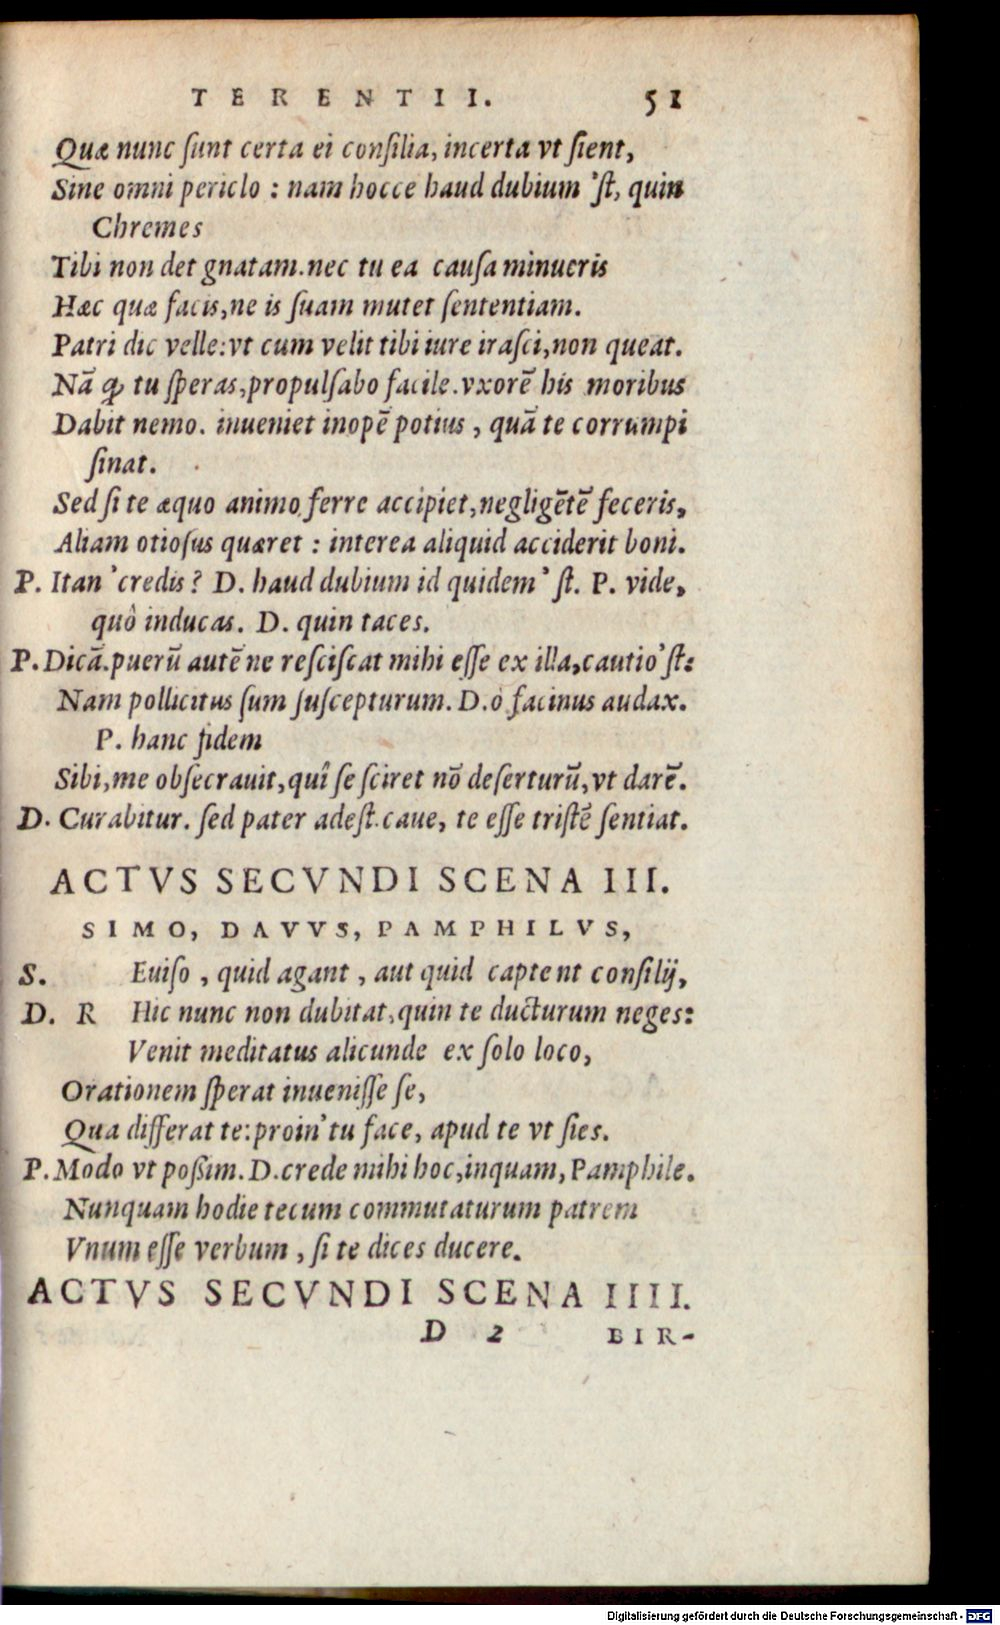 TERENTII. 51
Quæ nunc ſunt certa ei conſilia, incerta vt ſient,
Sine omni periclo : nam hocce haud dubium 'ſt, quin
Chremes
Tibi non det gnatam. nec tu ea cauſa minueris
Hæc quæ facis, ne is ſuam mutet ſententiam.
Patri dic velle: vt cum velit tibi iure iraſci, non queat.
Nā ꝙ tu ſperas, propulſabo facile. vxorē his moribus
Dabit nemo. inueniet inopē potius , quā te corrumpi
ſinat.
Sed ſi te æquo animo ferre accipiet, negligētē feceris,
Aliam otioſus quæret : interea aliquid acciderit boni.
P. Itan' credis? D. haud dubium id quidem' ſt. P. vide,
quô inducas. D. quin taces.
P. Dicā. puerū autē ne reſciſcat mihi eſſe ex illa, cautio'ſt:
Nam pollicitus ſum ſuſcepturum. D. ô facinus audax.
P. hanc fidem
Sibi, me obſecrauit, quî ſe ſciret nō deſerturū, vt darē.
D. Curabitur. ſed pater adeſt. caue, te eſſe triſtē ſentiat.
ACTVS SECVNDI SCENA III.
SIMO, DAVVS, PAMPHILVS,
S. Euiſo , quid agant , aut quid captent conſilij,
D. R Hic nunc non dubitat, quin te ducturum neges:
Venit meditatus alicunde ex ſolo loco,
Orationem ſperat inueniſſe ſe,
Qua differat te: proin' tu face, apud te vt ſies.
P. Modo vt poßim. D. crede mihi hoc, inquam, Pamphile.
Nunquam hodie tecum commutaturum patrem
Vnum eſſe verbum , ſi te dices ducere.
ACTVS SECVNDI SCENA IIII.
D 2 BIR-
Digitalisierung gefördert durch die Deutsche Forschungsgemeinschaft - DFG